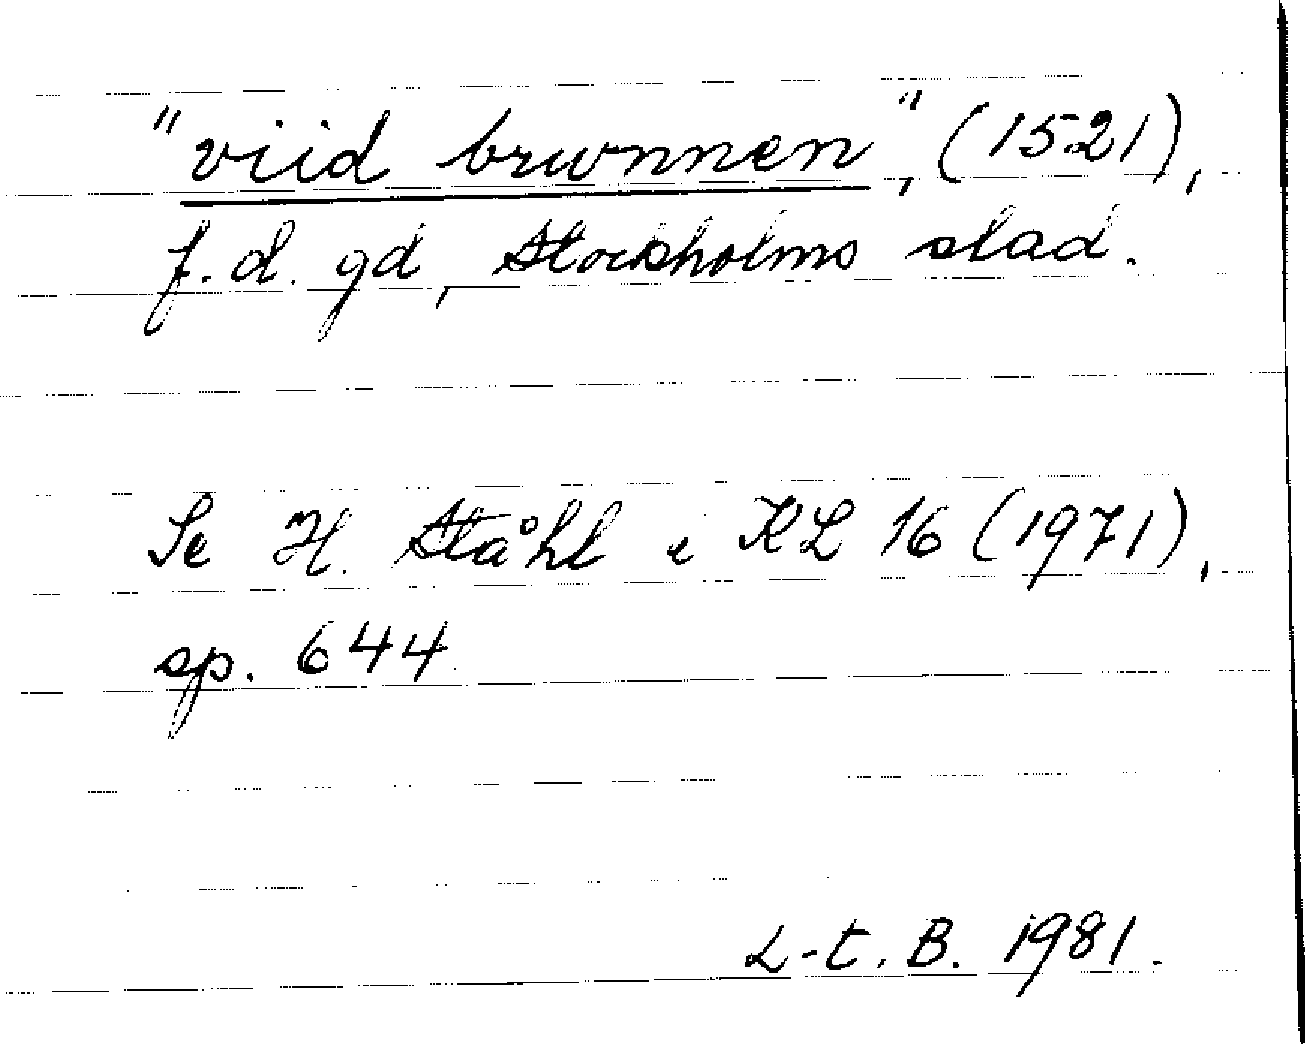 "viid brwnnen", (1521),
f.d. gd, Stockholms stad.
Se H. Ståhl i KL 16 (1971),
sp. 644
L-t. B. 1981.